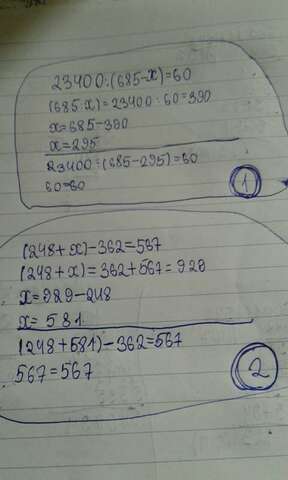 23400:(685-x)=60
(685-x)=23400:60=390
x=685-390
x=295
23400:(685-295)=60
60=60
1
(248+x)-362=567
(248+x)=362+567=929
x=929-248
x=581
(248+581)-362=567
567=567
2